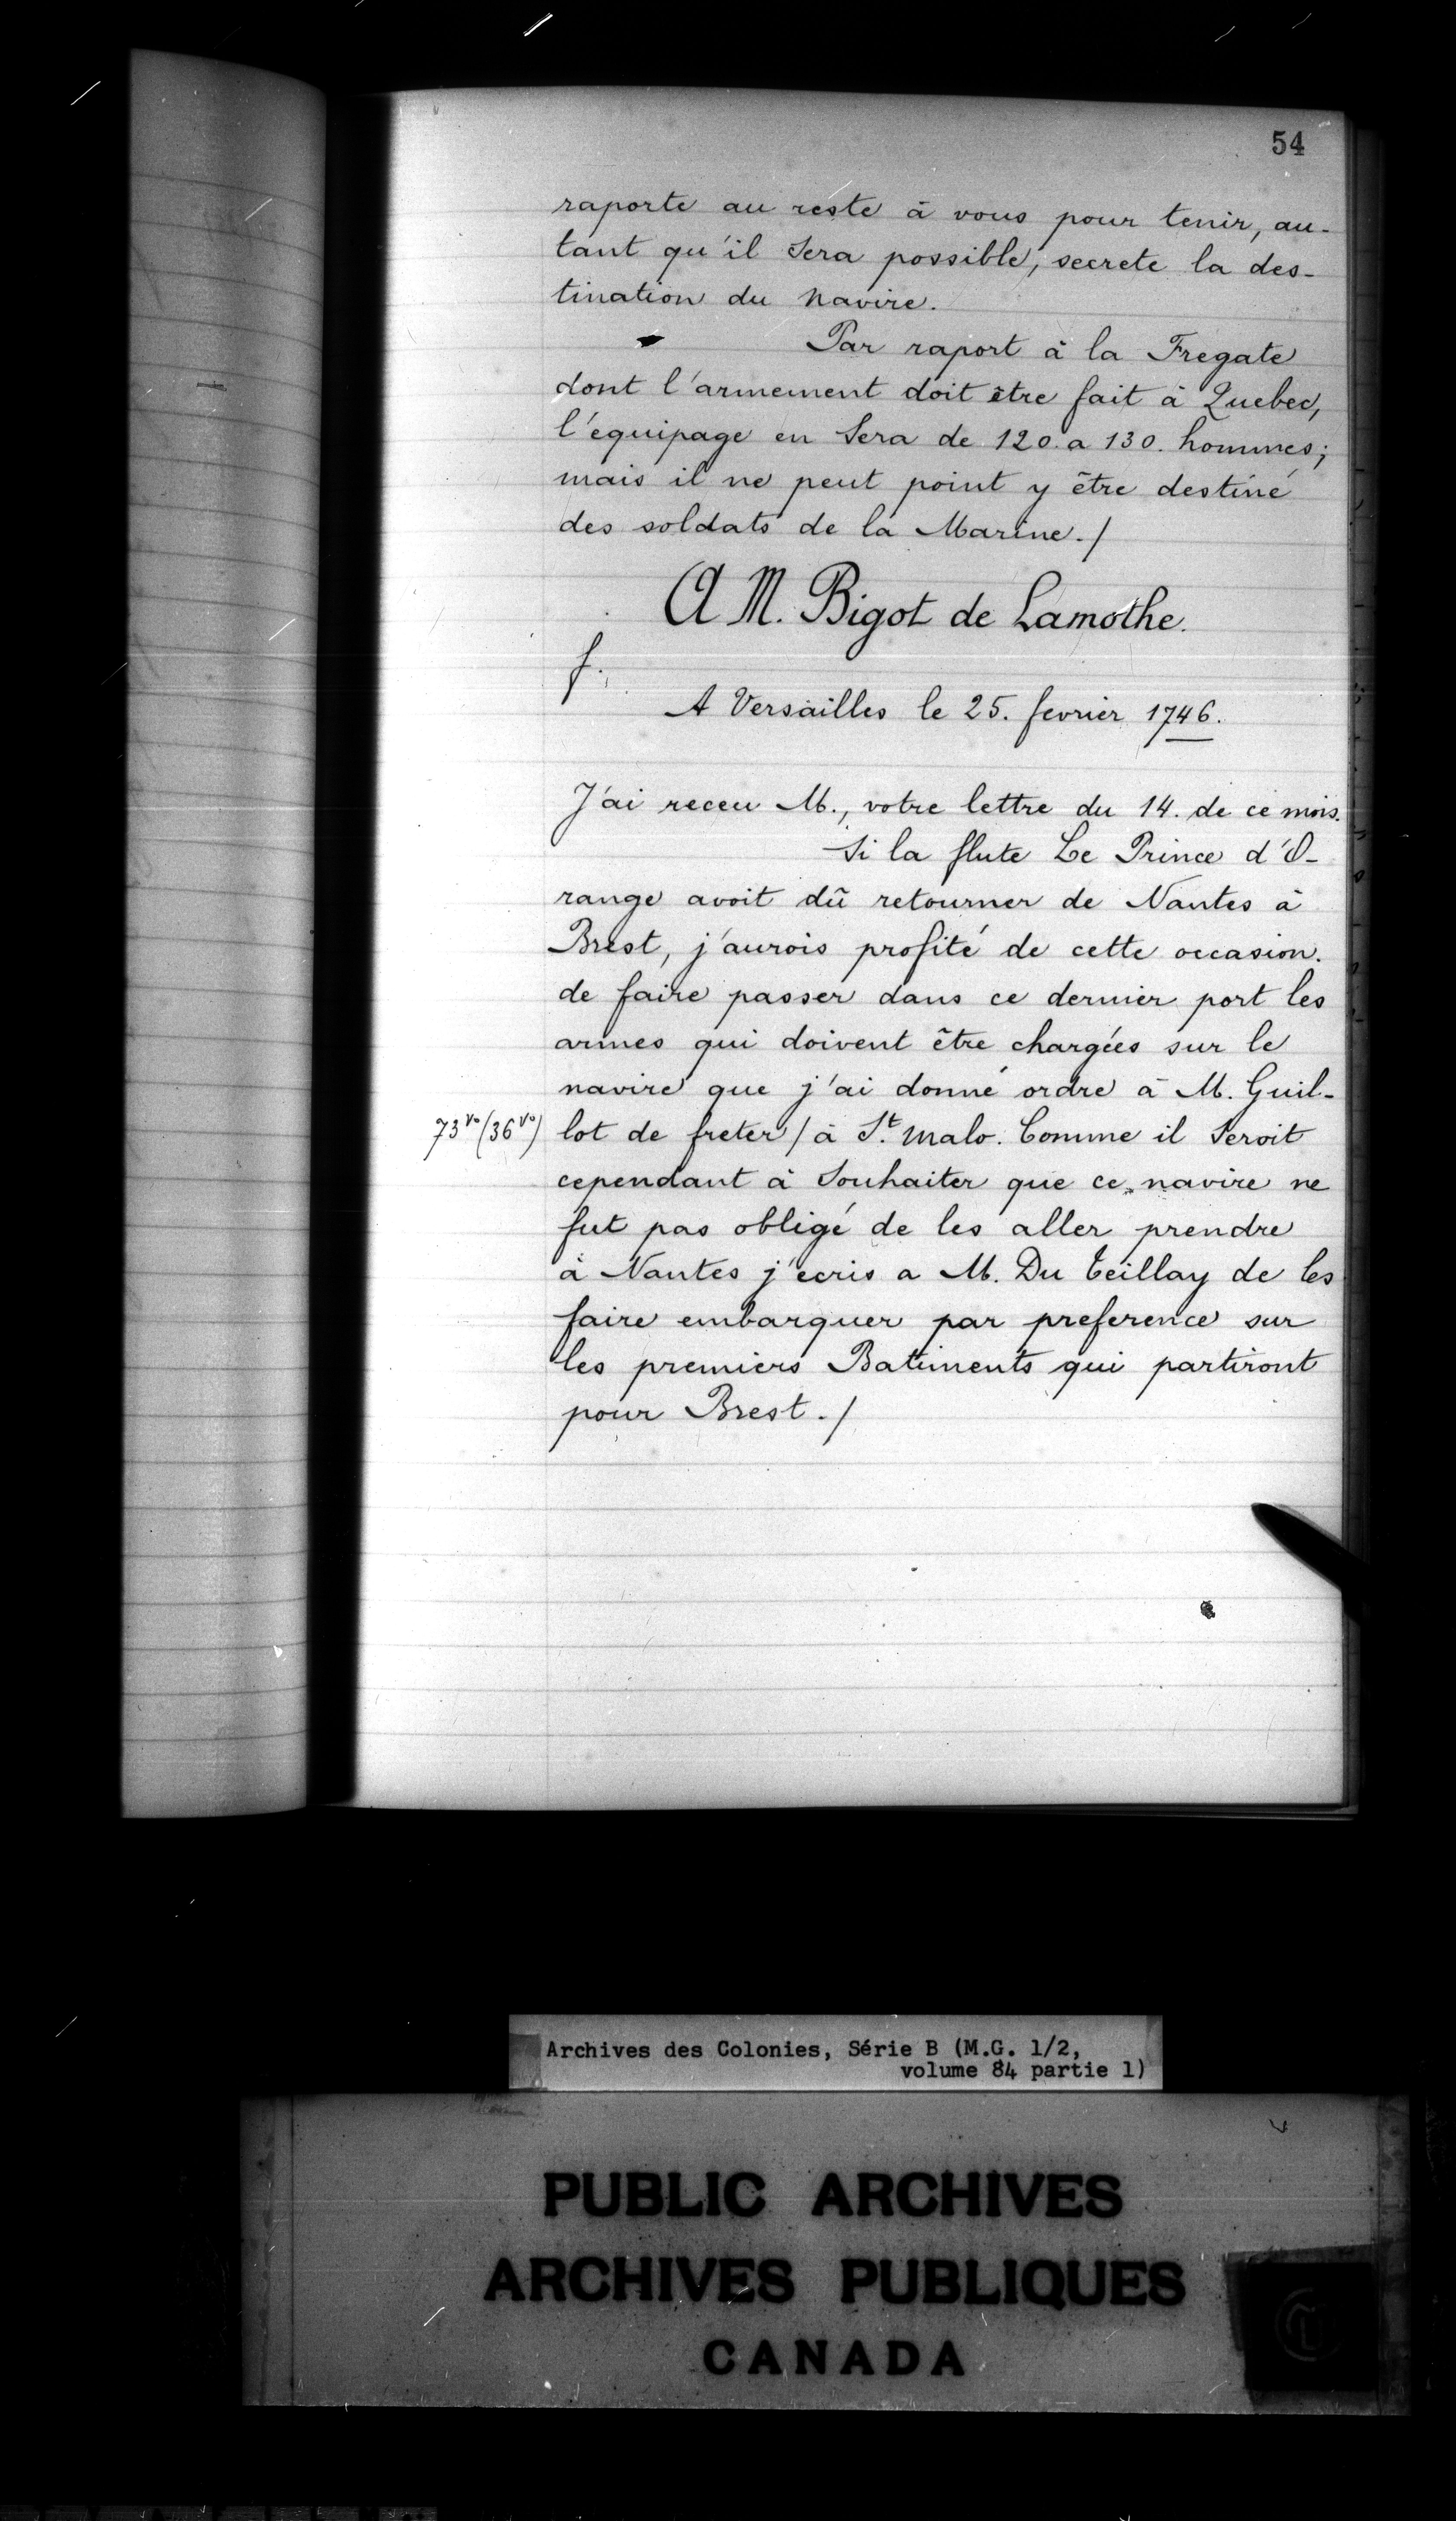 54
raporte au reste à vous pour tenir, au-
tant qu'il Sera possible, secrete la des-
tination du Navire.
Par raport à la Fregate
dont l'armement doit être fait à Quebec,
l'equipage en Sera de 120. a 130. hommes;
mais il ne peut point y être destiné
des soldats de la Marine./
A M. Bigot de Lamothe.
f.
A Versailles le 25. fevrier 1746.
J'ai receu M., votre lettre du 14. de ce mois.
Si la flute Le Prince d'O-
range avoit dû retourner de Nantes à
Brest, j'aurois profité de cette occasion.
de faire passer dans ce dernier port les
armes qui doivent être chargées sur le
navire que j'ai donné ordre à M. Guil-
73vo (36vo) lot de freter / à St. Malo. Comme il Seroit
cependant à Souhaiter que ce navire ne
fut pas obligé de les aller prendre
à Nantes j'ecris a M. Du Teillay de les
faire embarquer par preference sur
les premiers Batiments qui partiront
pour Brest./
Archives des Colonies, Série B (M.G. 1/2,
volume 84 partie 1)
PUBLIC ARCHIVES
ARCHIVES PUBLIQUES
CANADA